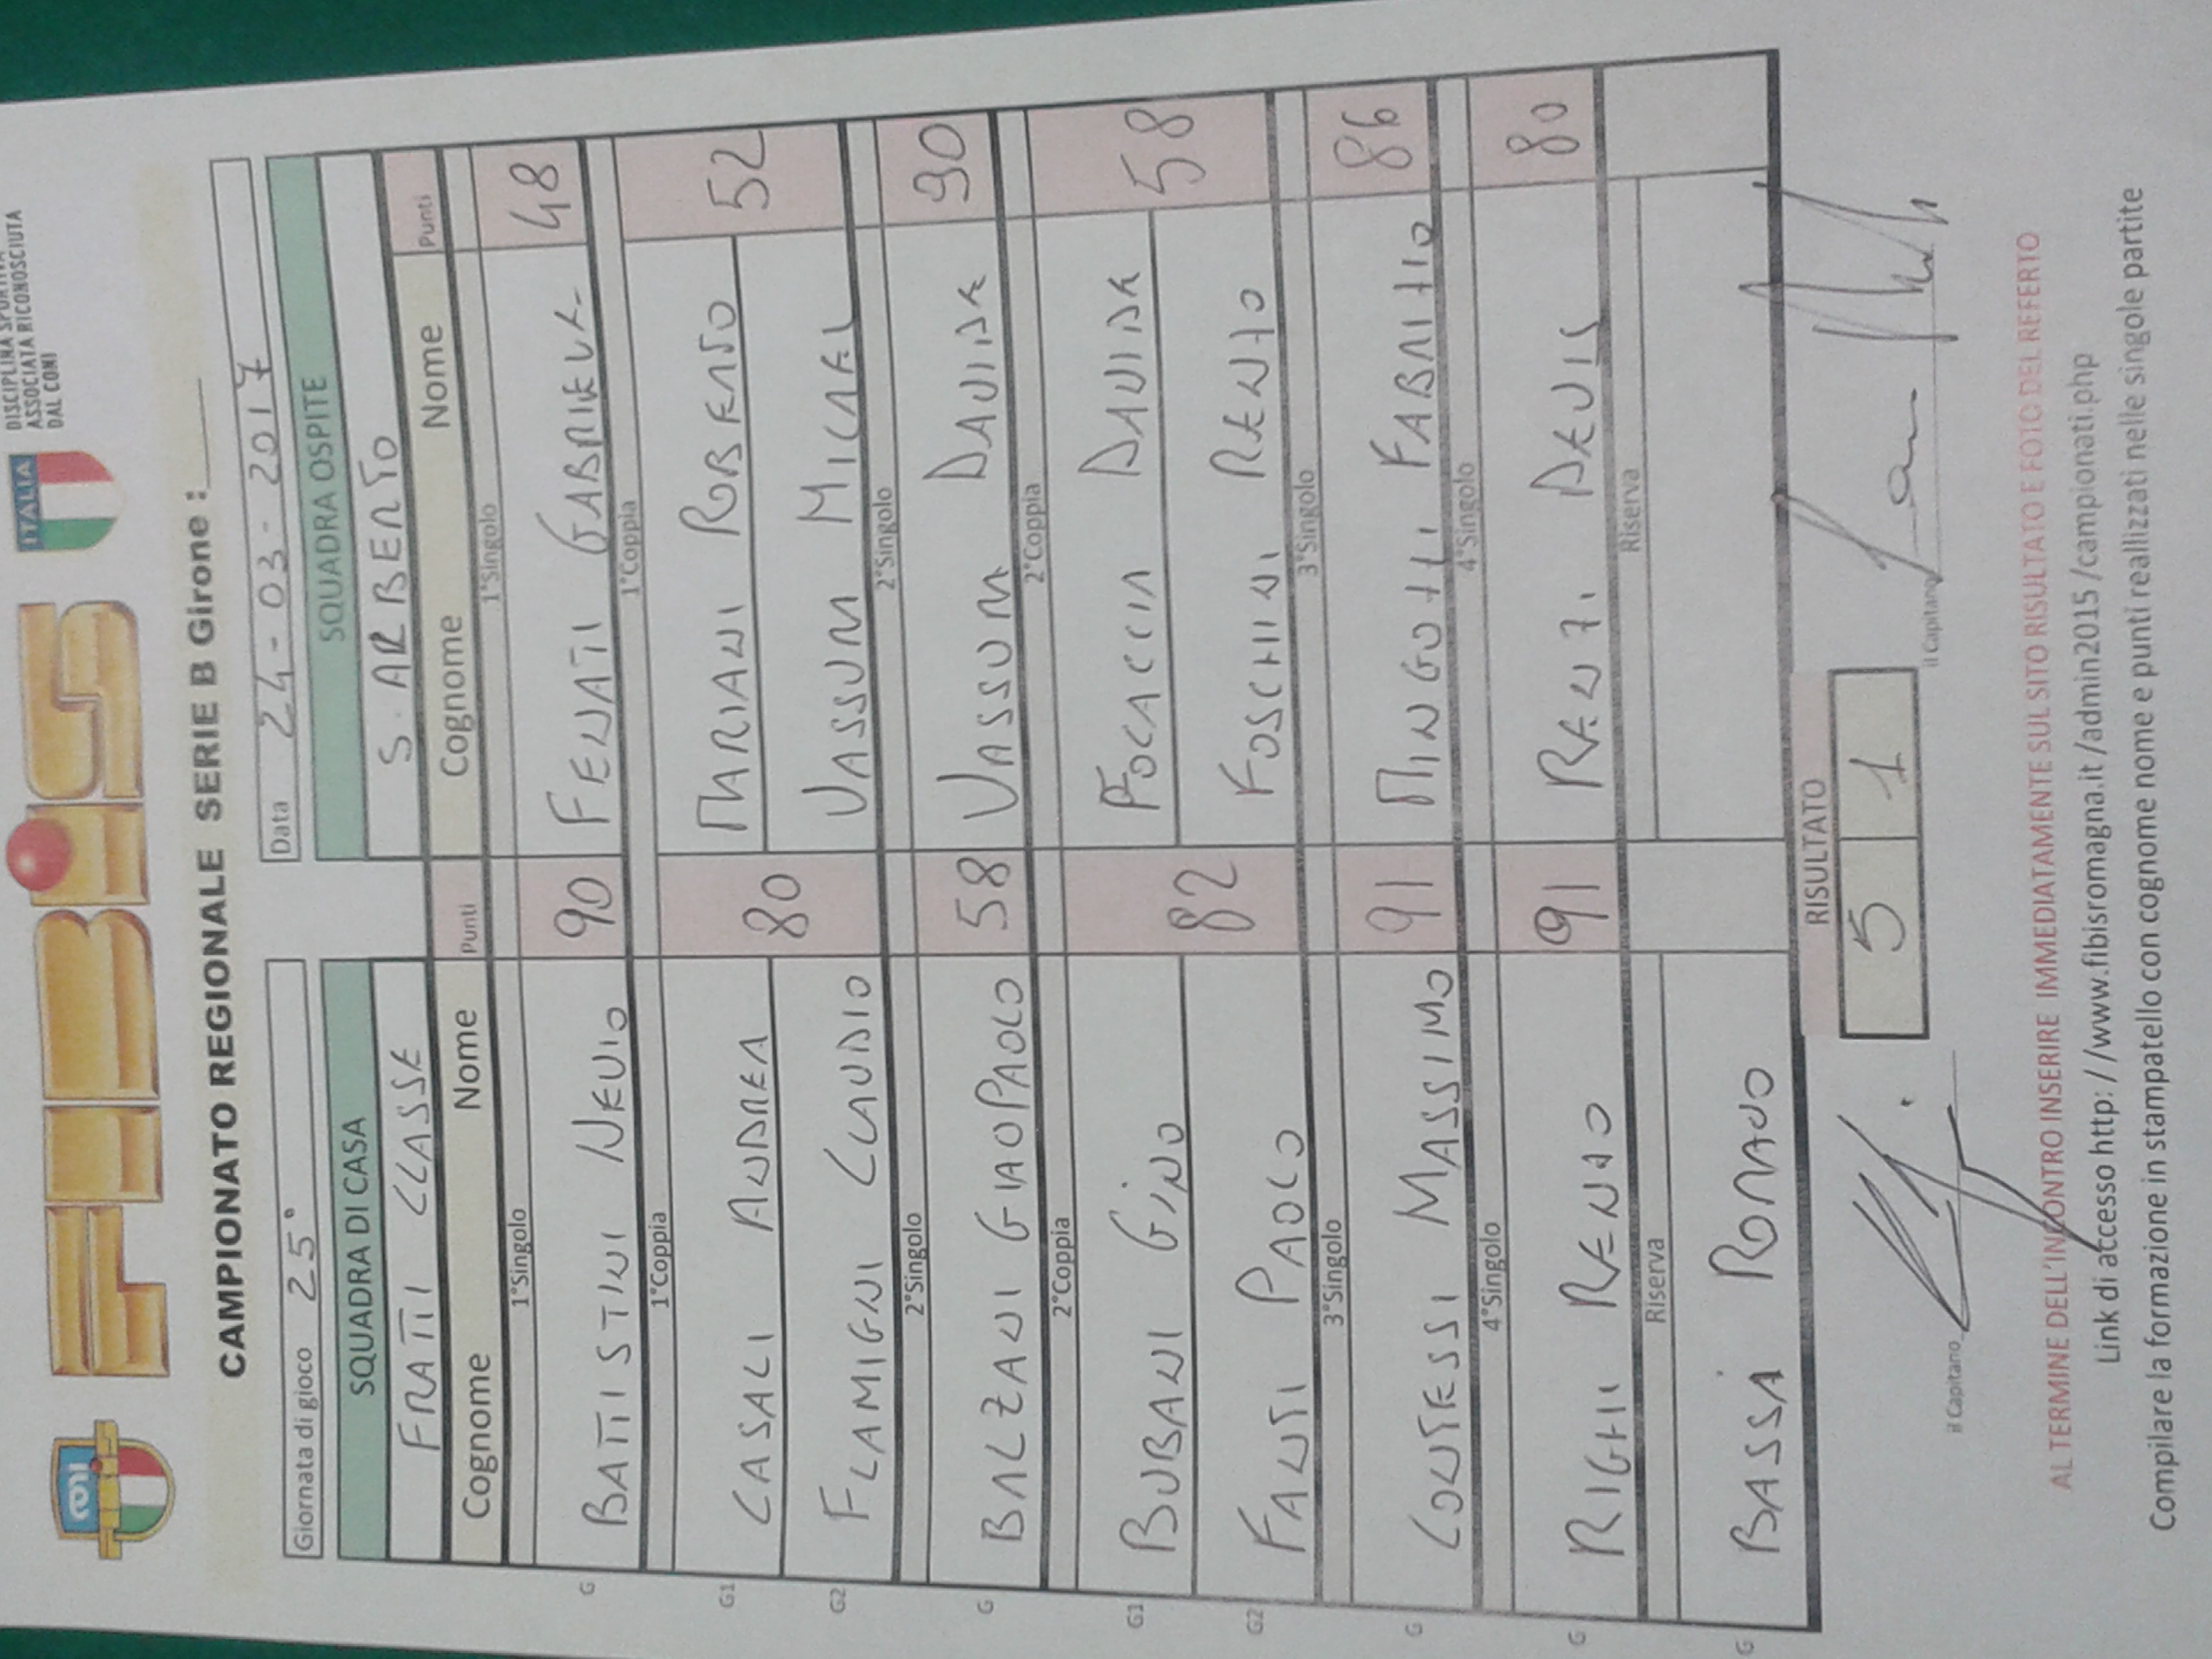 FIBiS
DISCIPLINA SPORTIVA
ASSOCIATA RICONOSCIUTA
DAL CONI
ITALIA
CAMPIONATO REGIONALE SERIE B Girone :
Giornata di gioco 25° Data 24-03-2017
SQUADRA DI CASA SQUADRA OSPITE
FRATTI CLASSE S. ALBERTO
Cognome Nome Punti Cognome Nome Punti
1°Singolo 1°Singolo
G BATTISTINI NEVIO 90 FENATI GABRIELE 48
1°Coppia 1°Coppia
G1 CASALI ANDREA 80 MARIANI ROBERTO 52
G2 FLAMIGNI CLAUDIO VASSURA MICAEL
2°Singolo 2°Singolo
G BALZANI GIAOPAOLO 58 VASSURA DAVIDE 90
2°Coppia 2°Coppia
G1 BUBANI GiNO 82 FOCACCIA DAVIDE 58
G2 FANTI PAOLO FOSCHINI RENZO
3°Singolo 3°Singolo
G CONTESSI MASSIMO 91 MINGOZZI FABRIZIO 86
4°Singolo 4°Singolo
G RIGHI RENZO 91 RENZI DENIS 80
Riserva Riserva
G BASSI ROMANO
RISULTATO
5 1
il Capitano il Capitano
AL TERMINE DELL'INCONTRO INSERIRE IMMEDIATAMENTE SUL SITO RISULTATO E FOTO DEL REFERTO
Link di accesso http: //www.fibisromagna.it /admin2015 /campionati.php
Compilare la formazione in stampatello con cognome nome e punti reallizzati nelle singole partite